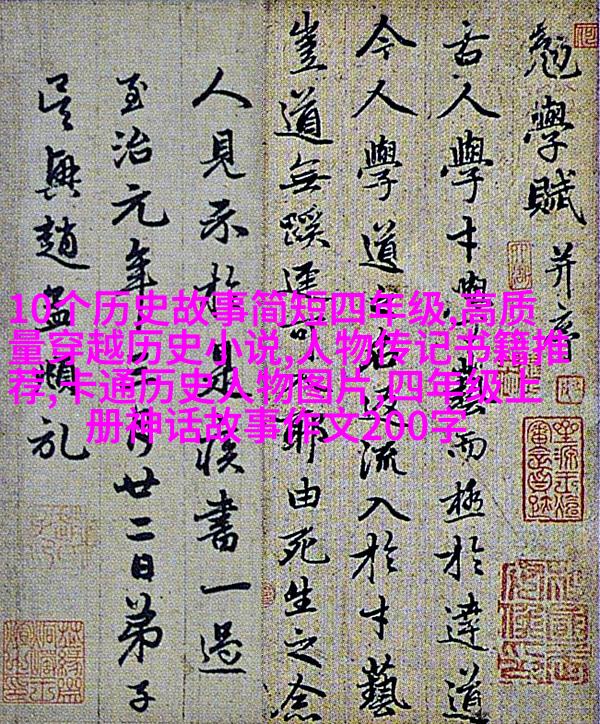 勉學賦并序
古人學才與藝而極於達道
今人學道之名流入於才藝
豈道無蹊逕可耶由死生之念
人見示於是書一過
至治元年月廿二日弟子
吳興趙孟頫
10个历史故事简短四年级,高质
量穿越历史小说,人物传记书籍推
荐,卡通历史人物图片,四年级上
册神话故事作文200字